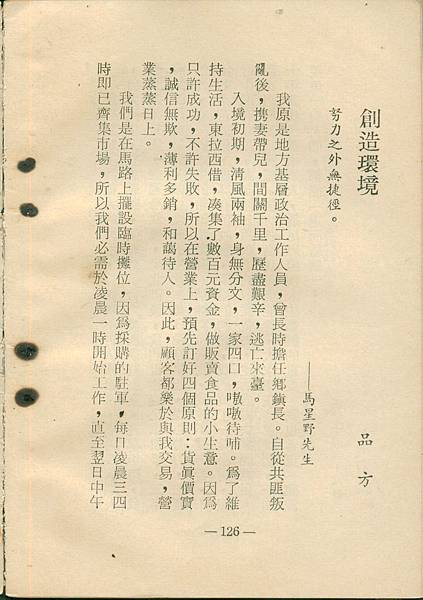 創造環境
品方
努力之外無捷徑。
——馬星野先生
我原是地方基層政治工作人員，曾長時擔任鄉鎮長。自從共匪叛
亂後，携妻帶兒，間關千里，歷盡艱辛，逃亡來臺。
入境初期，清風兩袖，身無分文，一家四口，嗷嗷待哺。爲了維
持生活，東拉西借，凑集了數百元資金，做販賣食品的小生意。因爲
只許成功，不許失敗，所以在營業上，預先訂好四個原則：貨眞價實
，誠信無欺，薄利多銷，和藹待人。因此，顧客都樂於與我交易，營
業蒸蒸日上。
我們是在馬路上擺設臨時攤位，因爲採購的駐軍，每日凌晨三四
時即已齊集市場，所以我們必需於凌晨一時開始工作，直至翌日中午
—126—